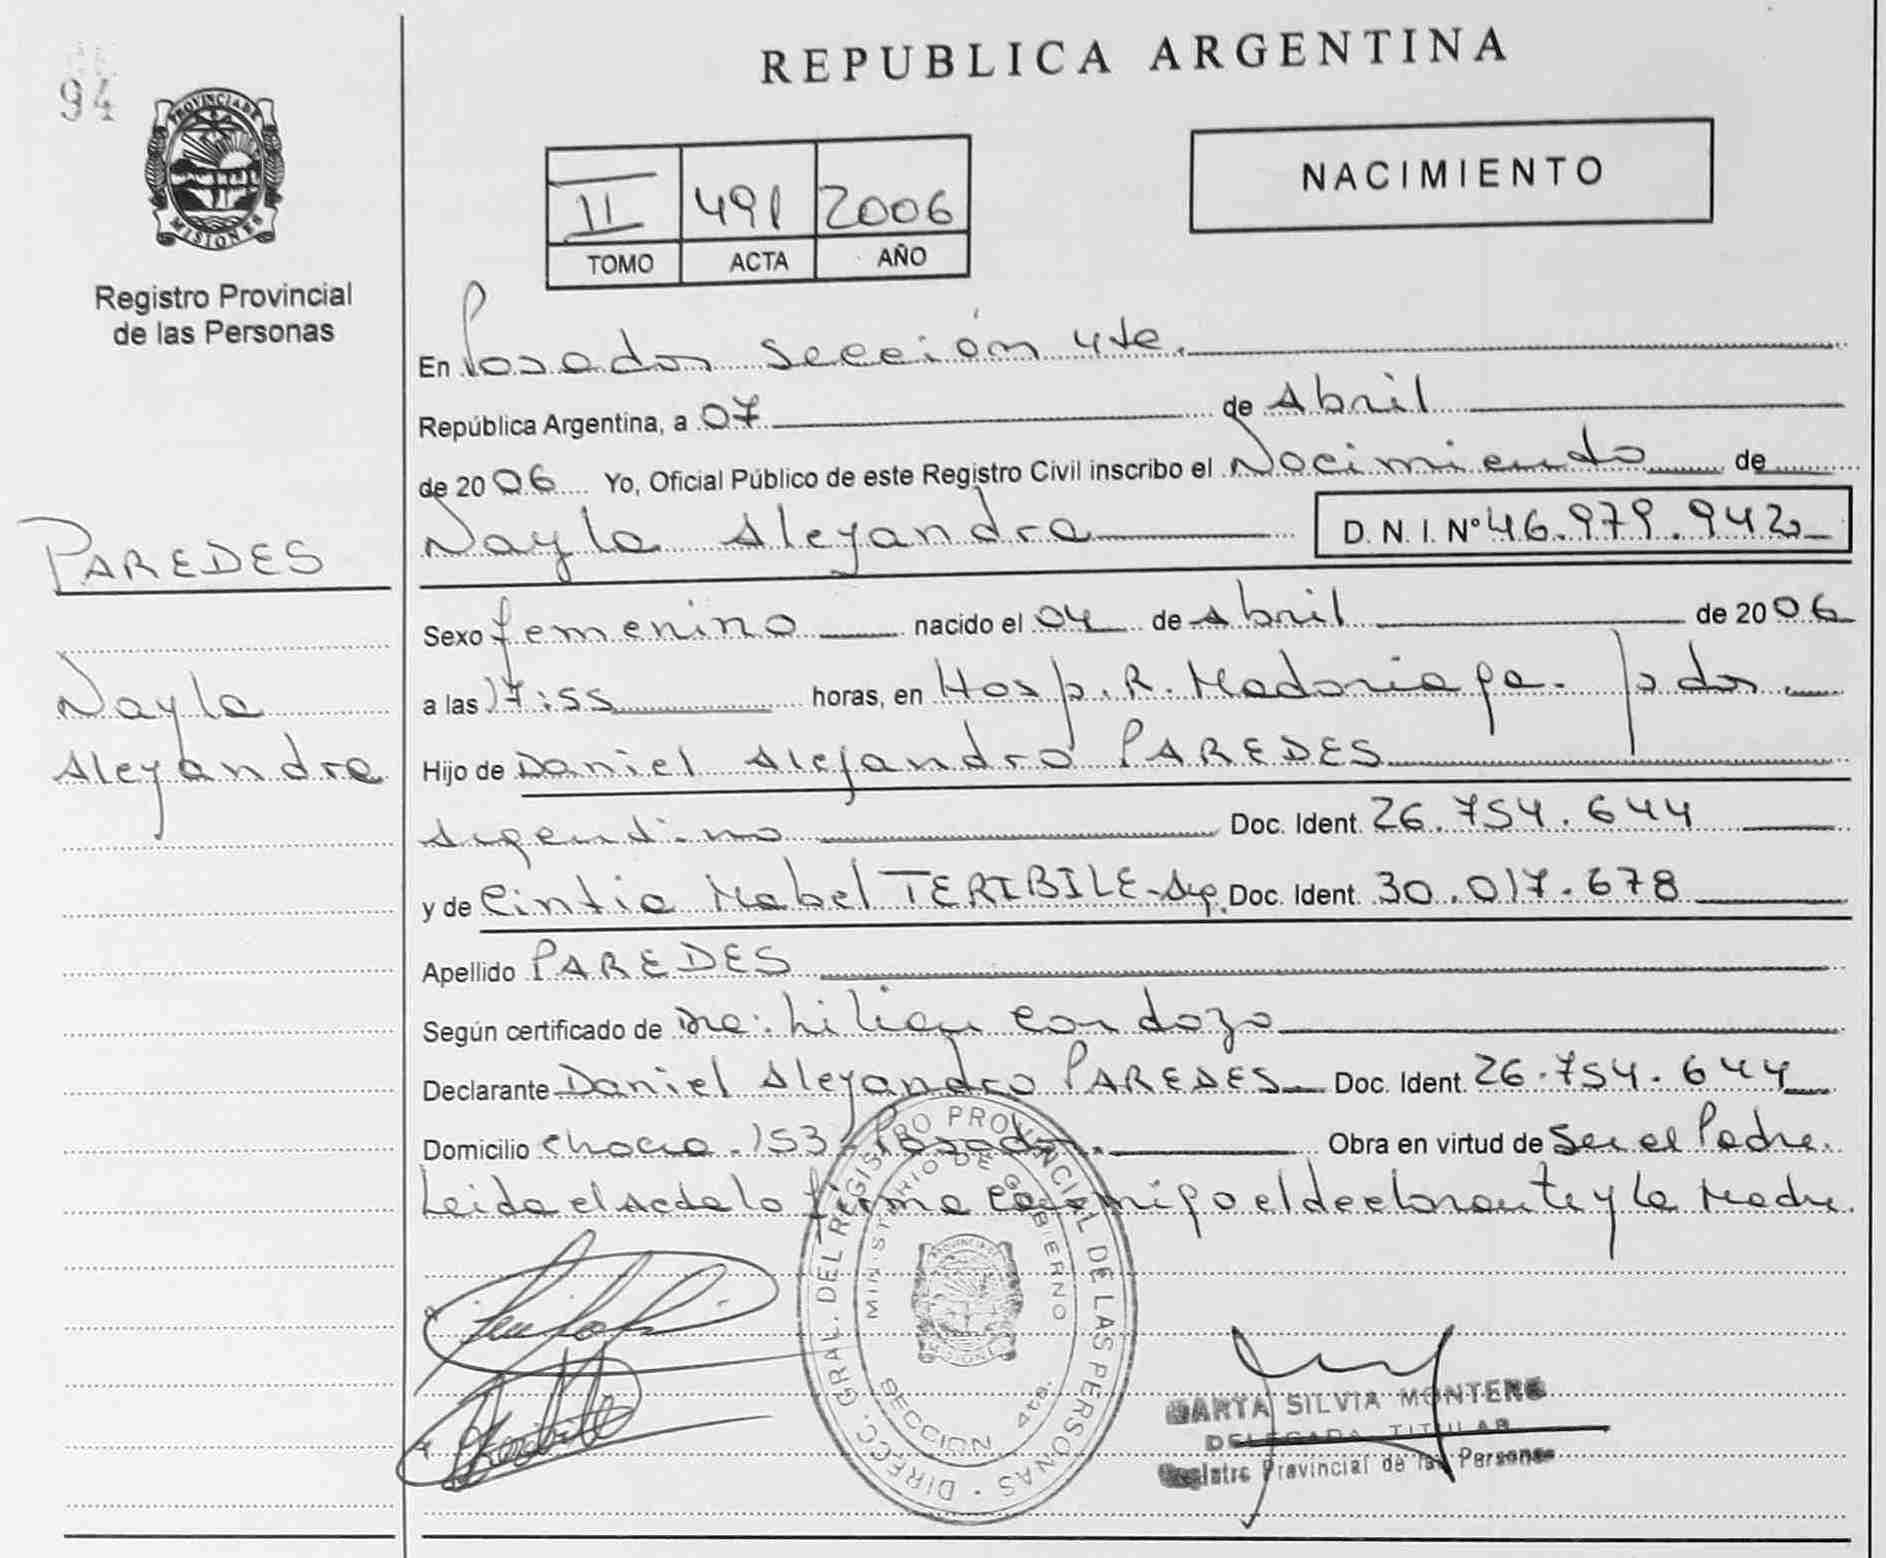 94
PROVINCIA DE
MISIONES
Registro Provincial
de las Personas
PAREDES
Nayla
Alejandra
REPUBLICA ARGENTINA
II 491 2006
TOMO ACTA AÑO
NACIMIENTO
En Posadas sección 4ta.
República Argentina, a 07 de Abril
de 2006 Yo, Oficial Público de este Registro Civil inscribo el Nacimiento de
Nayla Alejandra D.N.I. Nº 46.979.942
Sexo femenino nacido el 04 de Abril de 2006
a las 17:55 horas, en Hosp. R. Madariaga. Psdas.
Hijo de Daniel Alejandro PAREDES
Argentino Doc. Ident. 26.754.644
y de Cintia Mabel TERIBILE-Arg. Doc. Ident. 30.017.678
Apellido PAREDES
Según certificado de Lilian Cardozo
Declarante Daniel Alejandro PAREDES Doc. Ident. 26.754.644
Domicilio Chaco. 153 - Posadas. Obra en virtud de Ser el Padre.
Leida el Acta la firma conmigo el declarante y la Madre.
DIRECC. GRAL. DEL REGISTRO PROVINCIAL DE LAS PERSONAS
MINISTERIO DE GOBIERNO
PROVINCIA DE
MISIONES
SECCION 4ta.
MARTA SILVIA MONTERO
DELEGADA TITULAR
Registro Provincial de las Personas